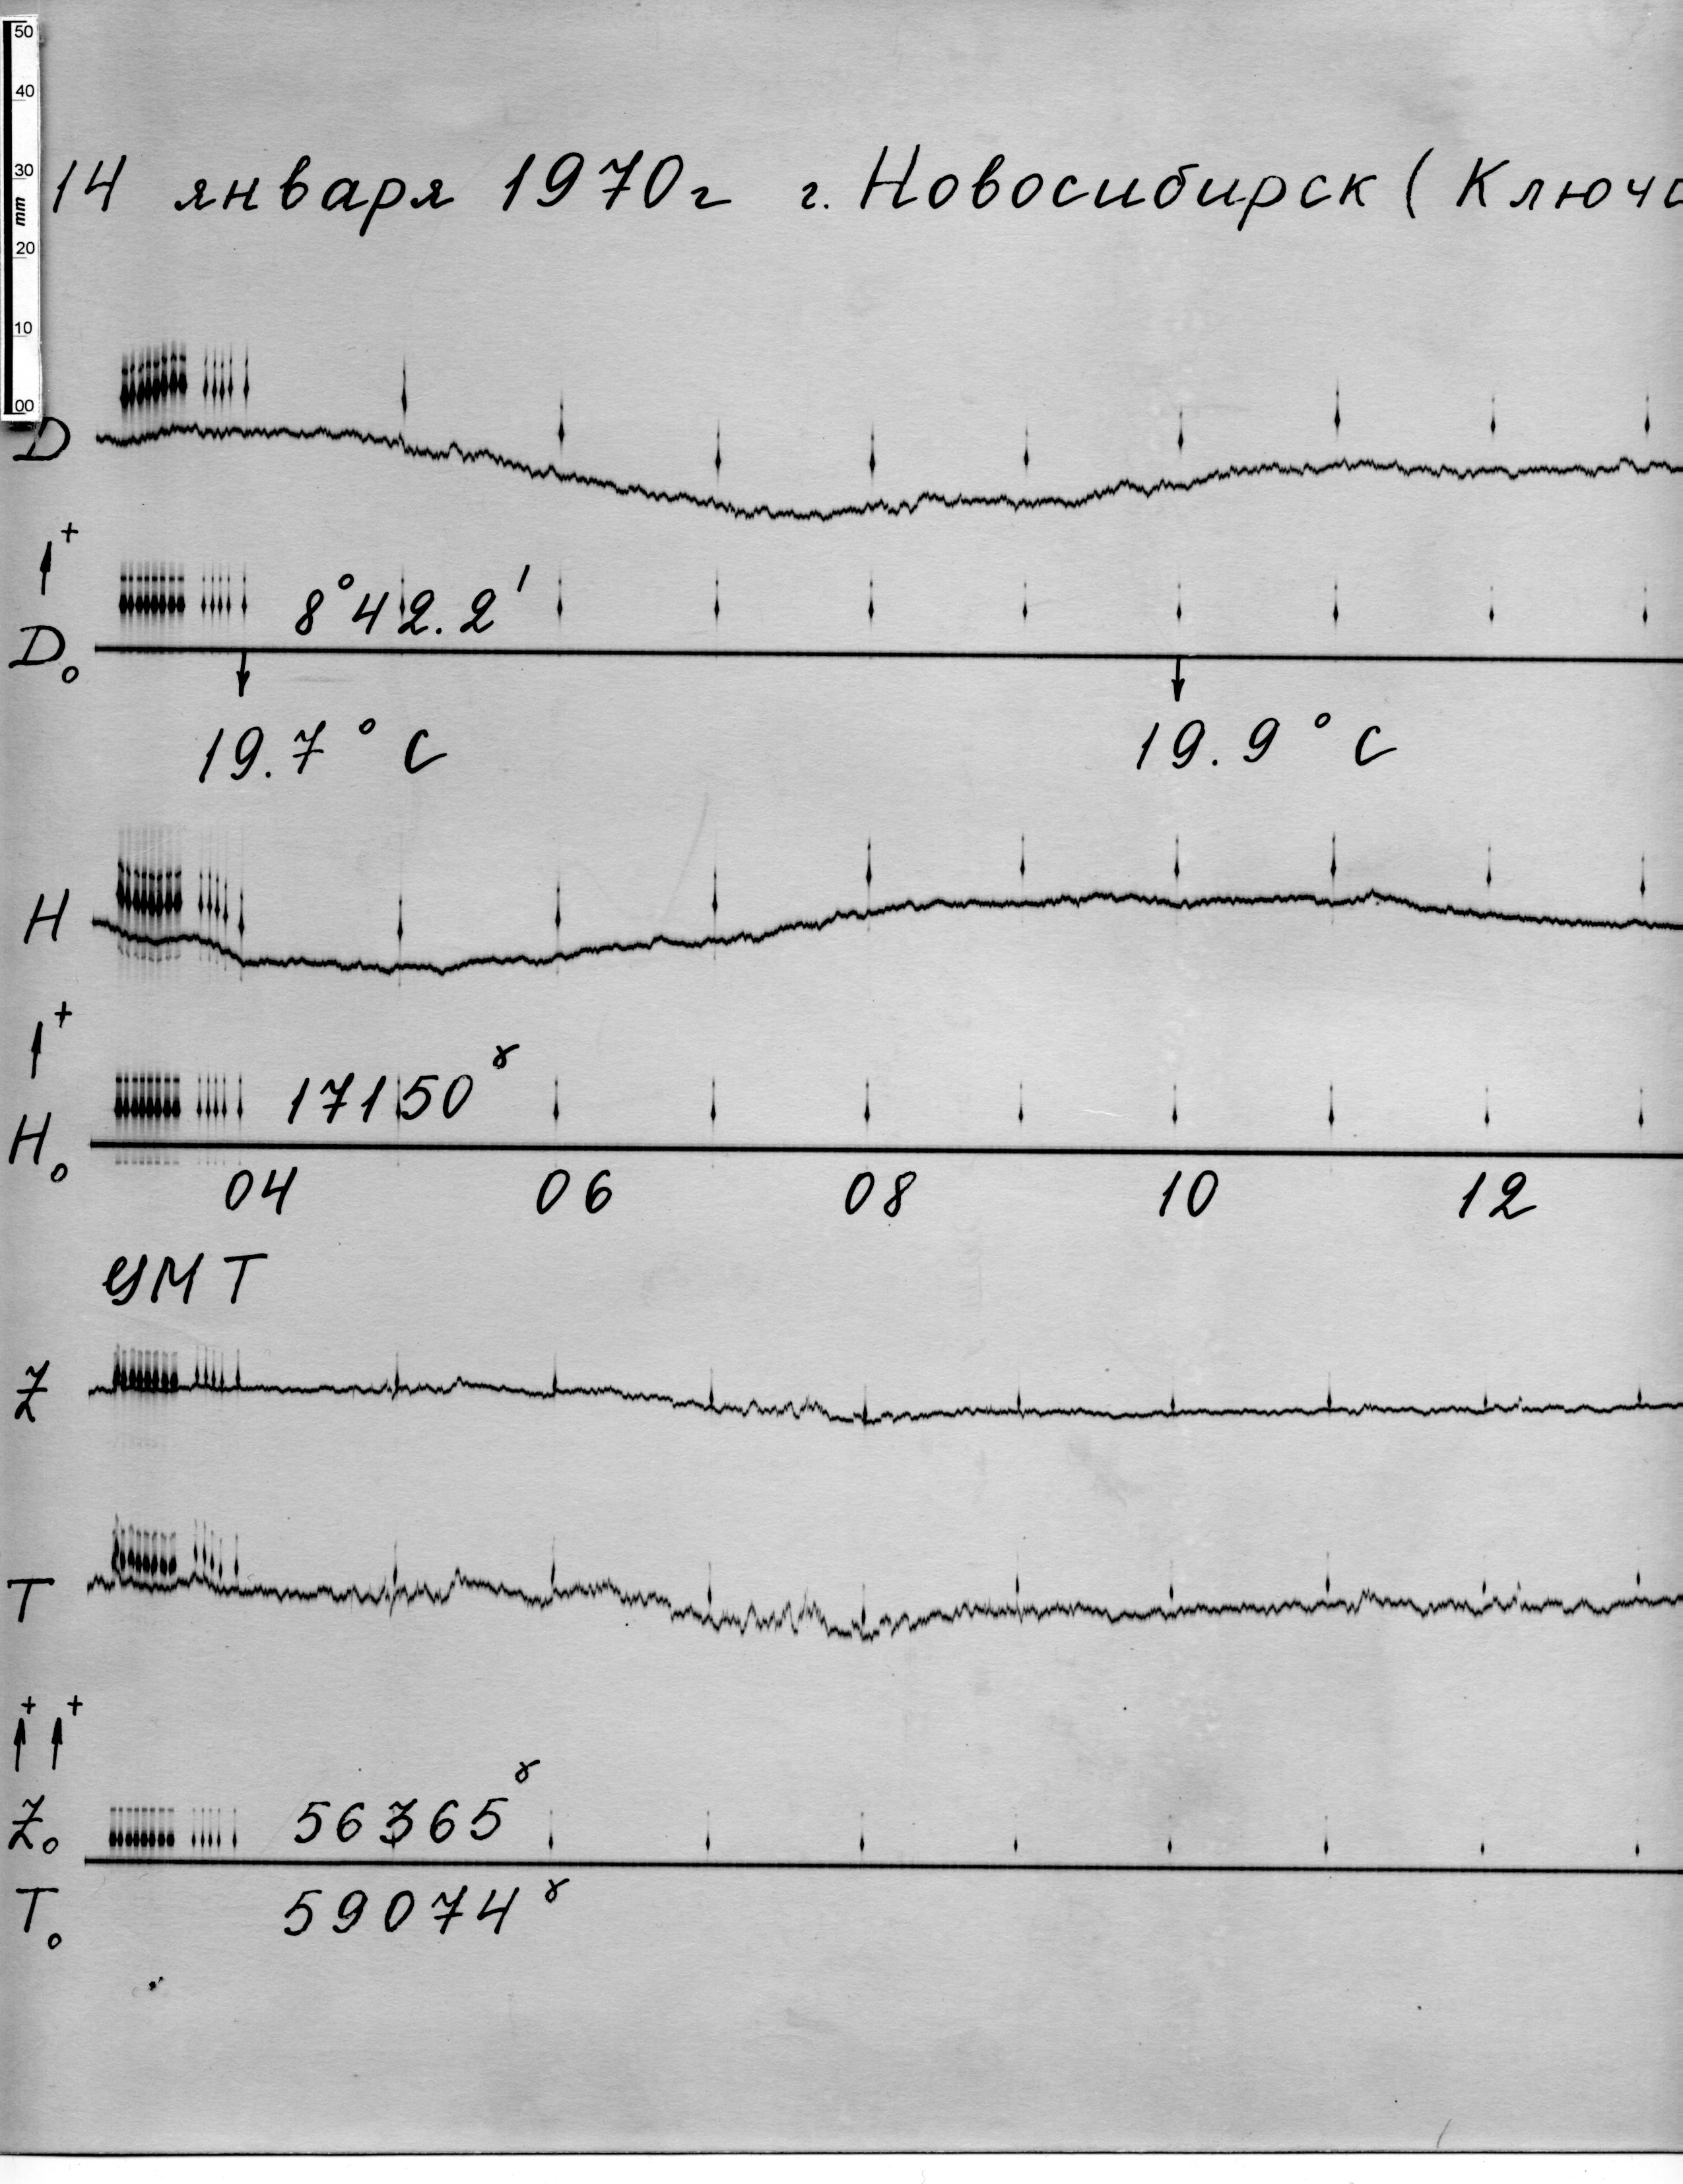 50
40
30
mm
20
10
00
14 января 1970г г. Новосибирск (Ключ
D
+
8°42.2'
D₀
19.7°C 19.9°C
H
+
17150ˠ
H₀
04 06 08 10 12
УМТ
Z
T
+ +
56365ˠ
Z₀
T₀ 59074ˠ